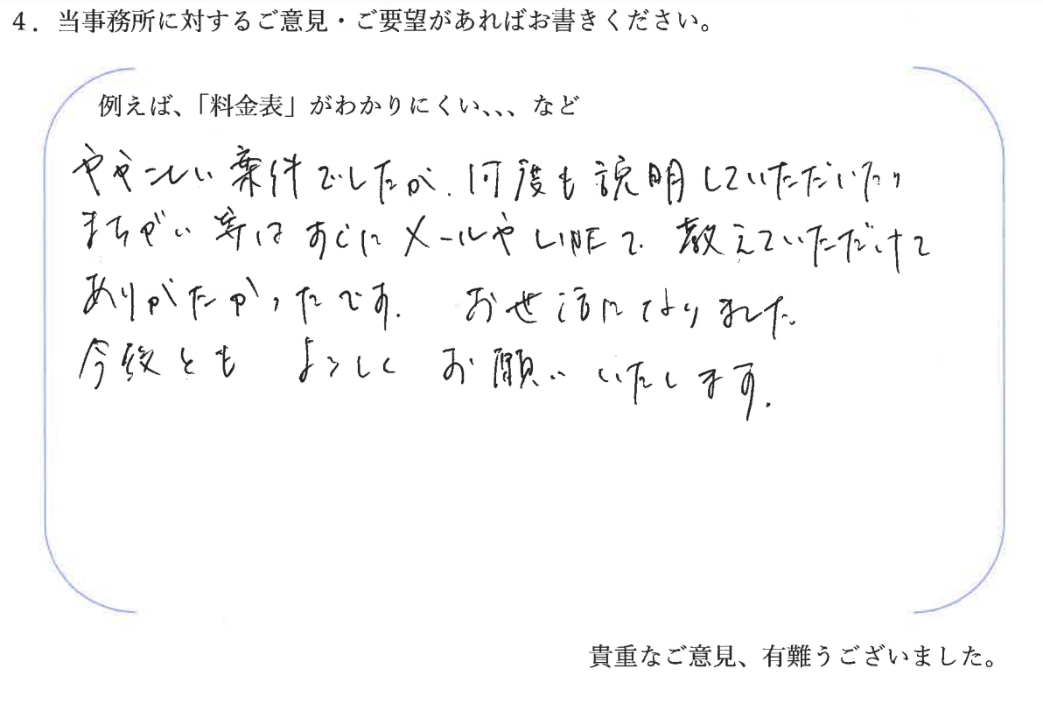 4．当事務所に対するご意見・ご要望があればお書きください。
例えば、「料金表」がわかりにくい、、、など
ややこしい案件でしたが、何度も説明していただいたり
まちがい等はすぐにメールやLINEで教えていただけて
ありがたかったです。 お世話になりました。
今後とも よろしく お願い いたします。
貴重なご意見、有難うございました。